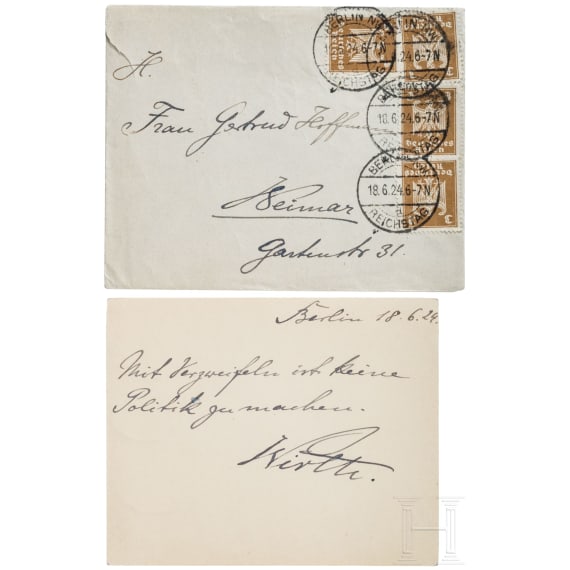 BERLIN NW
18.6.24.6-7N
REICHSTAG
BERLIN NW
18.6.24.6-7N
REICHSTAG
18.6.24.6-7N
a
REICHSTAG
H.
Frau Gertrud Hoffmann
Weimar
Gartenstr 31.
Berlin 18.6.24.
Mit Verzweifeln ist keine
Politik zu machen.
Wirth.
H